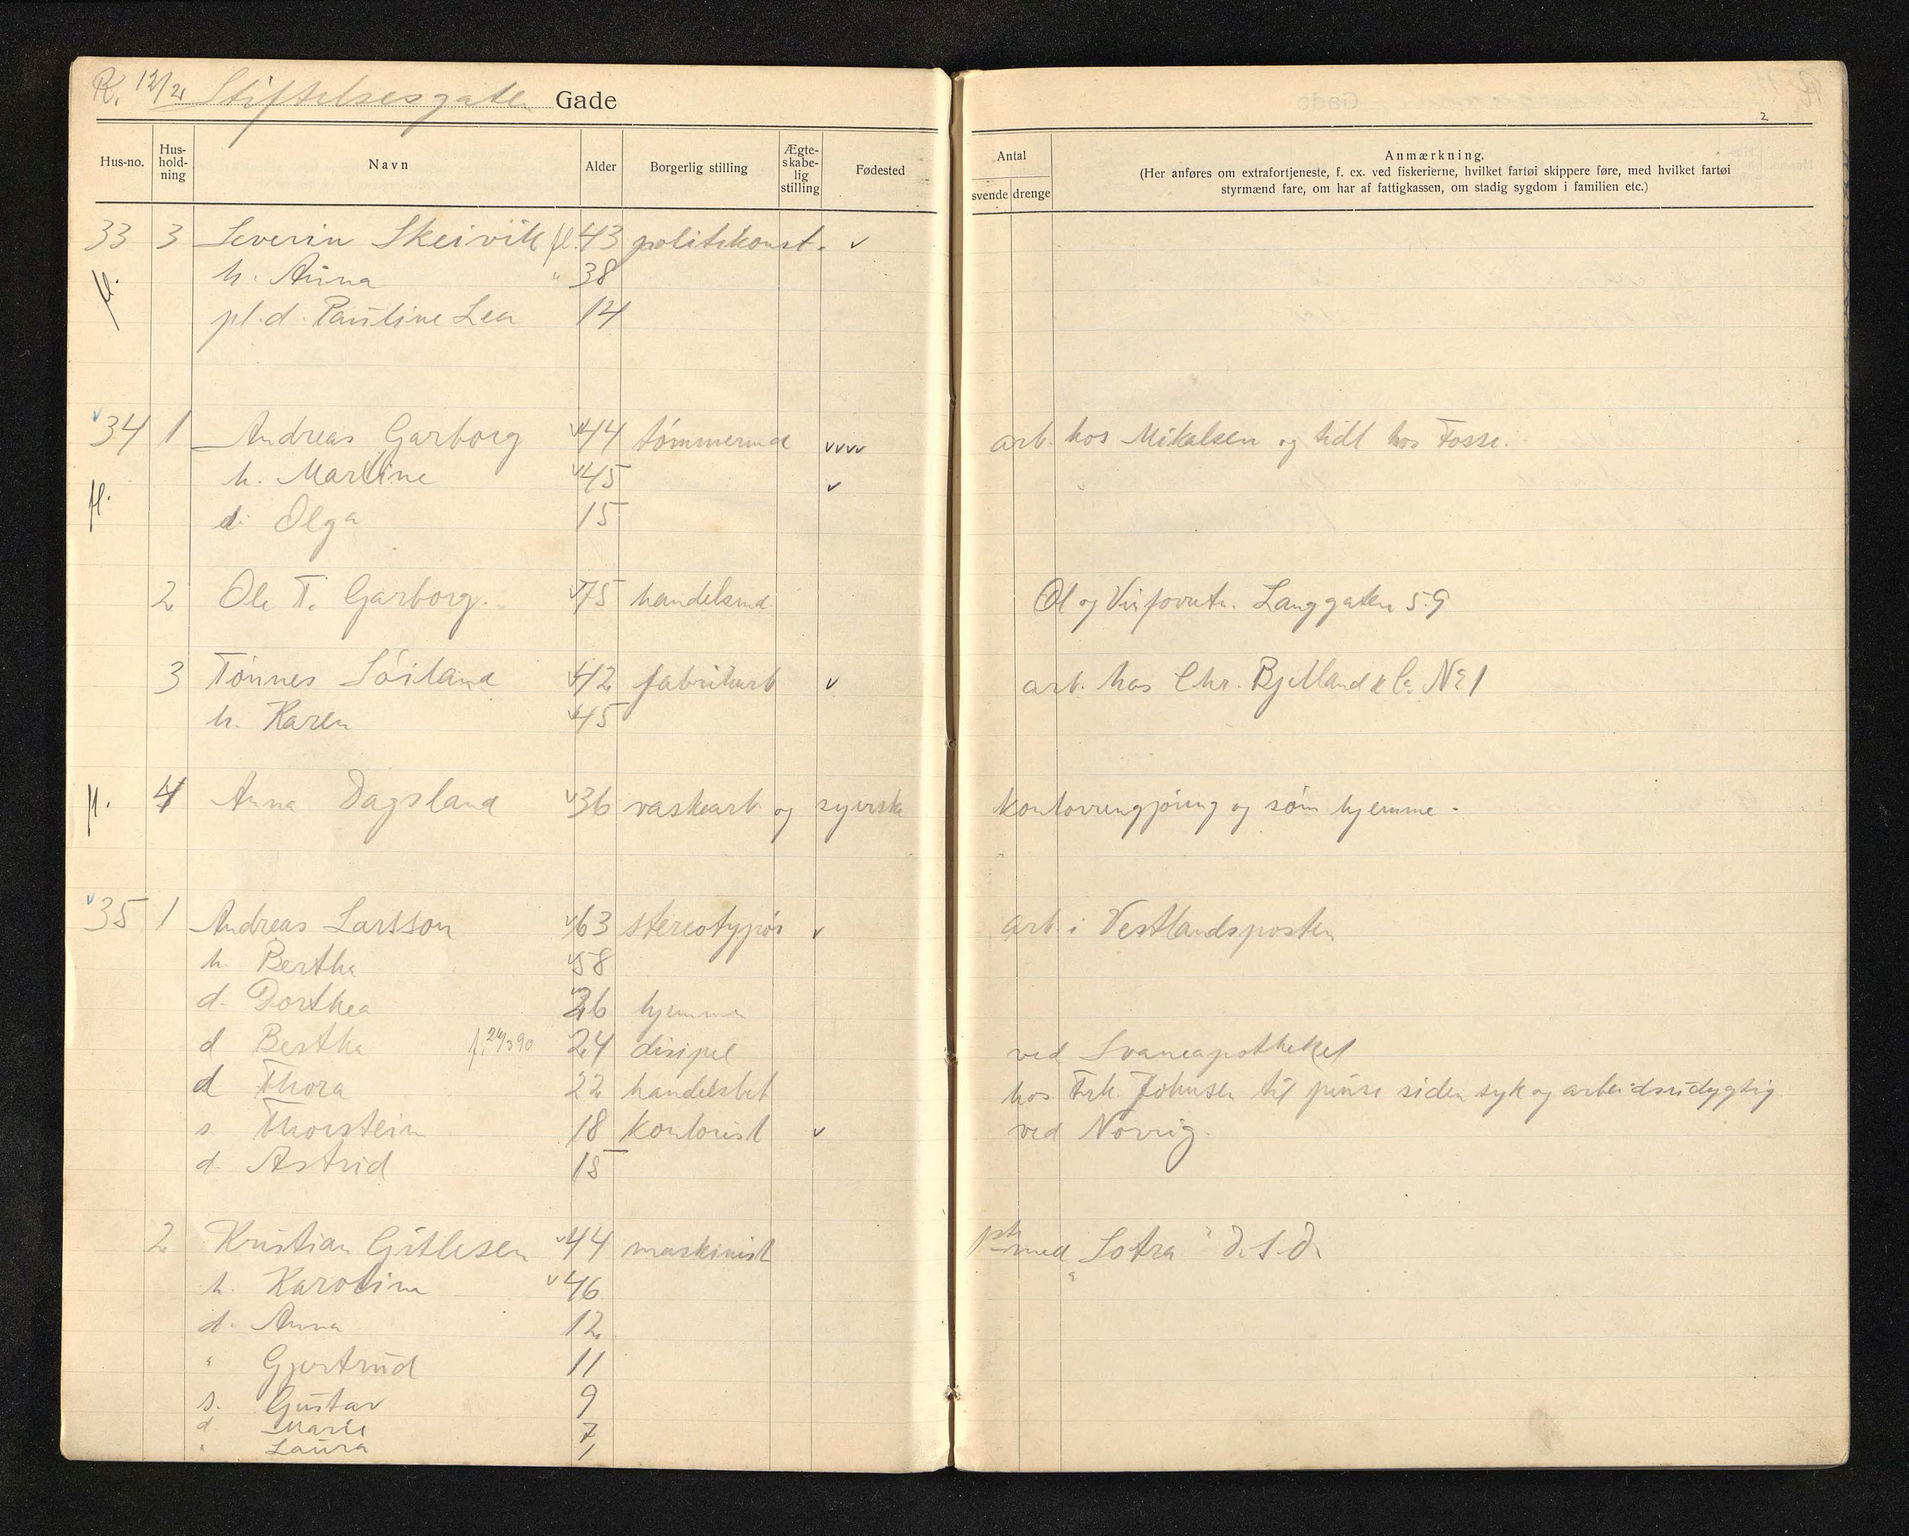 R. 12/2 Stiftelsesgaten Gade
2
Hus-no. Hus-hold-ning Navn Alder Borgerlig stilling Ægte-skabe-lig stilling Fødested Antal svende drenge Anmærkning.
(Her anføres om extrafortjeneste, f. ex. ved fiskerierne, hvilket fartøi skippere føre, med hvilket fartøi
styrmænd fare, om har af fattigkassen, om stadig sygdom i familien etc.)
33 3 Severin Skeivik fl. 43 politikonst.
fl. h. Anna " 38
pl. d. Pauline Lea 14
34 1 Andreas Garborg 44 tømmermd arb. hos Mikalsen og tidl hos Fosse.
h. Martine 45
fl. d. Olga 15
2 Ole T. Garborg. 75 handelsmd Langgaten 59
3 Tønnes Sóiland 42 fabrikarb arb. hos Chr. Bjelland & Co No 1
h. Karen 45
fl. 4 Anna Dagsland 36 vaskearb. og syerske kontorrengjøring og søm hjemme.
35 1 Andreas Larsson 63 stereotypør arb. i Vestlandsposten
h. Bertha 58
d. Dorthea 26 hjemme
d Bertha f. 24/3 90 24 disipel ved Svaneapotheket
d Thora 22 handelsbet hos Frk. Johnsen til pinse siden syk og arbeidsudygtig
s. Thorstein 18 kontorist ved Norrig.
d. Astrid 15
2 Kristian Gitlesen 44 maskinist pt med "Sotra" D. S. D.
h. Karoline 46
d. Anna 12
" Gjertrud 11
s. Gustav 9
d. Marie 7
" Laura 1